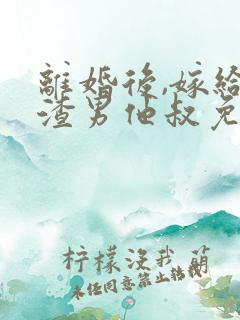 離婚後,嫁給
渣男他叔免
柠檬没我萌
未经同意禁止转载